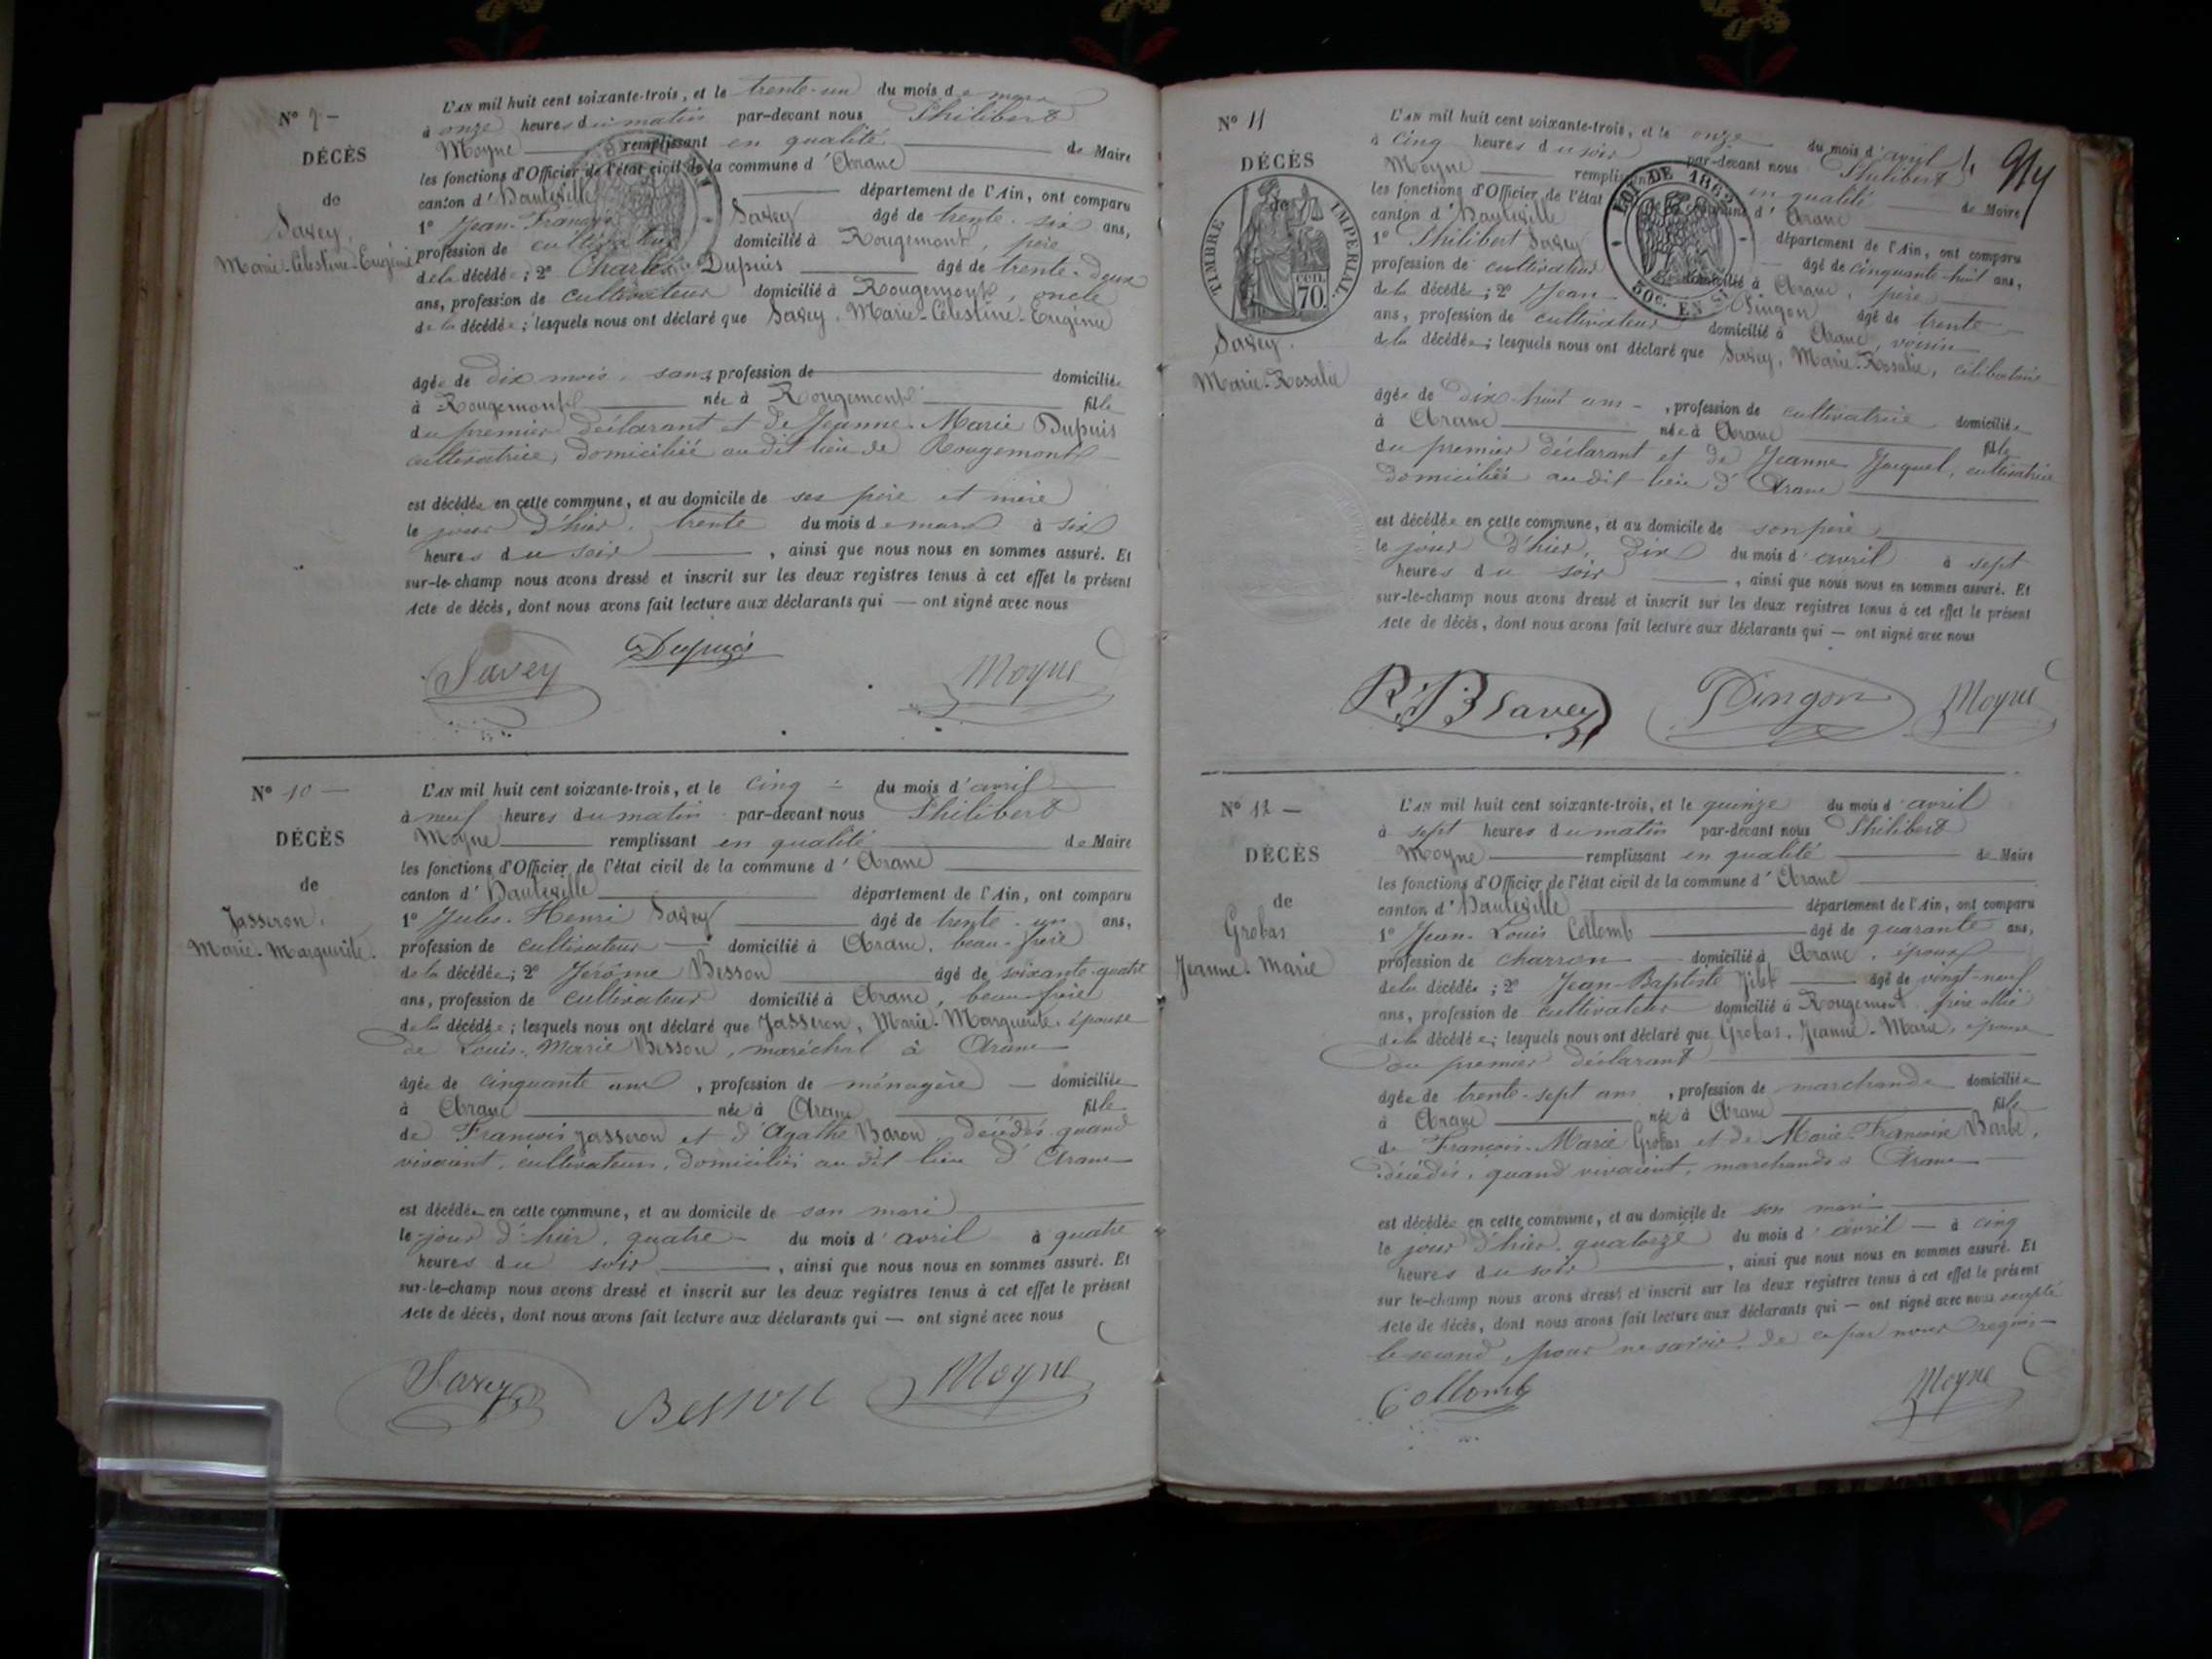 N° 9 —
DÉCÈS
de
Savey,
Marie-Célestine-Eugénie
L'AN mil huit cent soixante-trois, et le trente-un du mois de mars
à onze heures du matin par-devant nous Philibert
Moyne remplissant en qualité de Maire
les fonctions d'Officier de l'état civil de la commune d'Aranc
canton d'Hauteville département de l'Ain, ont comparu
1° Jean-François Savey âgé de trente-six ans,
profession de cultivateur domicilié à Rougemont, père
de la décédée ; 2° Charles Dupuis âgé de trente-deux
ans, profession de cultivateur domicilié à Rougemont, oncle
de la décédée ; lesquels nous ont déclaré que Savey, Marie-Célestine-Eugénie
âgée de dix mois, sans profession de domiciliée
à Rougemont née à Rougemont fille
du premier déclarant et de Jeanne-Marie Dupuis
cultivatrice, domiciliée au dit lieu de Rougemont
est décédée en cette commune, et au domicile de ses père et mère
le jour d'hier, trente du mois de mars à six
heures du soir , ainsi que nous nous en sommes assuré. Et
sur-le-champ nous avons dressé et inscrit sur les deux registres tenus à cet effet le présent
Acte de décès, dont nous avons fait lecture aux déclarants qui — ont signé avec nous
Savey Dupuis Moyne
N° 10 —
DÉCÈS
de
Jasseron,
Marie-Marguerite.
L'AN mil huit cent soixante-trois, et le cinq du mois d'avril
à neuf heures du matin par-devant nous Philibert
Moyne remplissant en qualité de Maire
les fonctions d'Officier de l'état civil de la commune d'Aranc
canton d'Hauteville département de l'Ain, ont comparu
1° Jules-Henri Savey âgé de trente-un ans,
profession de cultivateur domicilié à Aranc, beau-frère
de la décédée ; 2° Jérôme Besson âgé de soixante-quatre
ans, profession de cultivateur domicilié à Aranc, beau-frère
de la décédée ; lesquels nous ont déclaré que Jasseron, Marie-Marguerite, épouse
de Louis-Marie Besson, maréchal à Aranc
âgée de cinquante ans , profession de ménagère — domiciliée
à Aranc née à Aranc fille
de François Jasseron et d'Agathe Baron, décédés quand
vivaient, cultivateurs, domiciliés au dit lieu d'Aranc
est décédée en cette commune, et au domicile de son mari
le jour d'hier, quatre du mois d'avril à quatre
heures du soir , ainsi que nous nous en sommes assuré. Et
sur-le-champ nous avons dressé et inscrit sur les deux registres tenus à cet effet le présent
Acte de décès, dont nous avons fait lecture aux déclarants qui — ont signé avec nous
Savey Besson Moyne
N° 11
DÉCÈS
de
TIMBRE IMPERIAL.
70 cen.
Savey.
Marie-Rosalie
LOI DE 1862
50c. EN SUS
L'AN mil huit cent soixante-trois, et le onze du mois d'avril
à cinq heures du soir par-devant nous Philibert
Moyne remplissant en qualité de Maire
les fonctions d'Officier de l'état civil de la commune d'Aranc
canton d'Hauteville département de l'Ain, ont comparu
1° Philibert Savey âgé de cinquante-huit ans,
profession de cultivateur domicilié à Aranc, père
de la décédée ; 2° Jean Pingon âgé de trente
ans, profession de cultivateur domicilié à Aranc, voisin
de la décédée ; lesquels nous ont déclaré que Savey, Marie-Rosalie, célibataire
âgée de dix-huit ans —, profession de cultivatrice domiciliée
à Aranc née à Aranc fille
du premier déclarant et de Jeanne Jacquet, cultivatrice
domiciliée au dit lieu d'Aranc
est décédée en cette commune, et au domicile de son père
le jour d'hier, dix du mois d'avril à sept
heures du soir , ainsi que nous nous en sommes assuré. Et
sur-le-champ nous avons dressé et inscrit sur les deux registres tenus à cet effet le présent
Acte de décès, dont nous avons fait lecture aux déclarants qui — ont signé avec nous
Savey Pingon Moyne
N° 12 —
DÉCÈS
de
Grobas
Jeanne-Marie
L'AN mil huit cent soixante-trois, et le quinze du mois d'avril
à sept heures du matin par-devant nous Philibert
Moyne remplissant en qualité de Maire
les fonctions d'Officier de l'état civil de la commune d'Aranc
canton d'Hauteville département de l'Ain, ont comparu
1° Jean-Louis Collomb âgé de quarante ans,
profession de charron — domicilié à Aranc, époux
de la décédée ; 2° Jean-Baptiste âgé de vingt-neuf
ans, profession de cultivateur domicilié à Rougemont, frère allié
de la décédée ; lesquels nous ont déclaré que Grobas, Jeanne-Marie, épouse
du premier déclarant
âgée de trente-sept ans , profession de marchande domiciliée
à Aranc née à Aranc fille
de François-Marie Grobas et de Marie-Françoise Barbe,
décédés, quand vivaient, marchands à Aranc
est décédée en cette commune, et au domicile de son mari
le jour d'hier, quatorze du mois d'avril — à cinq
heures du soir , ainsi que nous nous en sommes assuré. Et
sur-le-champ nous avons dressé et inscrit sur les deux registres tenus à cet effet le présent
Acte de décès, dont nous avons fait lecture aux déclarants qui — ont signé avec nous excepté
le second, pour ne savoir, de ce par nous requis
Collomb Moyne